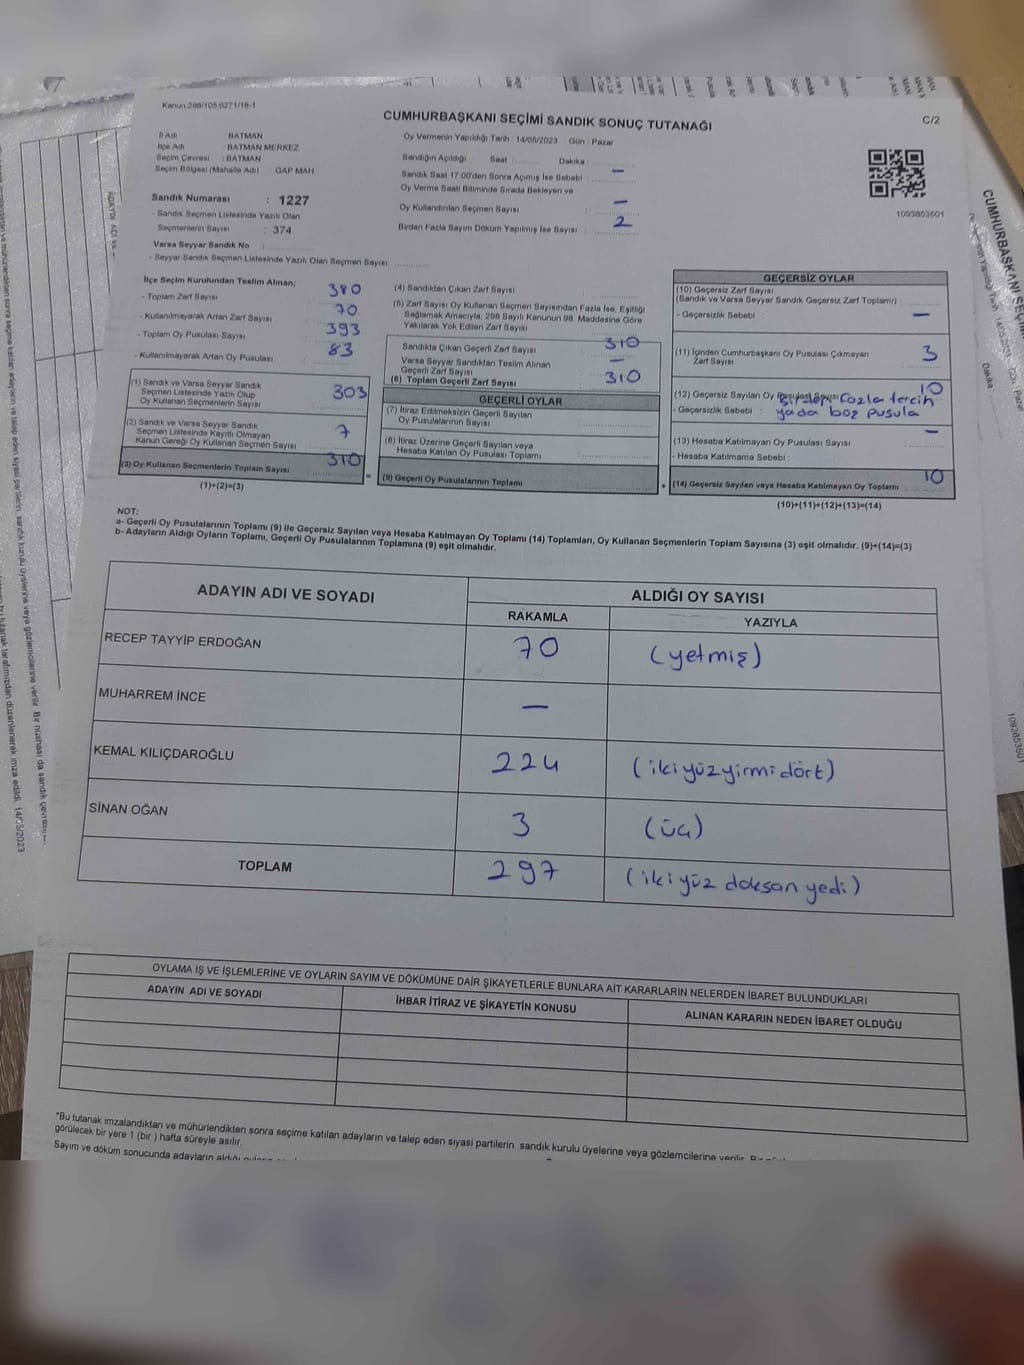 Kanun:298/105;6271/18-1
CUMHURBAŞKANI SEÇİMİ SANDIK SONUÇ TUTANAĞI
C/2
İl Adı : BATMAN
İlçe Adı : BATMAN MERKEZ
Seçim Çevresi : BATMAN
Seçim Bölgesi (Mahalle Adı) : GAP MAH.
Sandık Numarası : 1227
- Sandık Seçmen Listesinde Yazılı Olan
Seçmenlerin Sayısı : 374
Varsa Seyyar Sandık No :
- Seyyar Sandık Seçmen Listesinde Yazılı Olan Seçmen Sayısı:
Oy Vermenin Yapıldığı Tarih : 14/05/2023 Gün : Pazar
Sandığın Açıldığı Saat Dakika :
Sandık Saat 17:00'den Sonra Açımış İse Sebebi : —
Oy Verme Saati Bitiminde Sırada Bekleyen ve
Oy Kullandırılan Seçmen Sayısı : —
Birden Fazla Sayım Döküm Yapılmış İse Sayısı : 2
1093853501
İlçe Seçim Kurulundan Teslim Alınan;
- Toplam Zarf Sayısı 380
- Kullanılmayarak Artan Zarf Sayısı 70
- Toplam Oy Pusulası Sayısı 393
- Kullanılmayarak Artan Oy Pusulası 83
(1) Sandık ve Varsa Seyyar Sandık
Seçmen Listesinde Yazılı Olup
Oy Kullanan Seçmenlerin Sayısı 303
(2) Sandık ve Varsa Seyyar Sandık
Seçmen Listesinde Kayıtlı Olmayan
Kanun Gereği Oy Kullanan Seçmen Sayısı 7
(3) Oy Kullanan Seçmenlerin Toplam Sayısı 310
(1)+(2)=(3)
(4) Sandıktan Çıkan Zarf Sayısı
(5) Zarf Sayısı Oy Kullanan Seçmen Sayısından Fazla İse, Eşitliği
Sağlamak Amacıyla; 298 Sayılı Kanunun 98. Maddesine Göre
Yakılarak Yok Edilen Zarf Sayısı
Sandıkta Çıkan Geçerli Zarf Sayısı 310
Varsa Seyyar Sandıktan Teslim Alınan
Geçerli Zarf Sayısı —
(6) Toplam Geçerli Zarf Sayısı 310
GEÇERLİ OYLAR
(7) İtiraz Edilmeksizin Geçerli Sayılan
Oy Pusulalarının Sayısı
(8) İtiraz Üzerine Geçerli Sayılan veya
Hesaba Katılan Oy Pusulası Toplamı
= (9) Geçerli Oy Pusulalarının Toplamı +
GEÇERSİZ OYLAR
(10) Geçersiz Zarf Sayısı
(Sandık ve Varsa Seyyar Sandık Geçersiz Zarf Toplamı) :
- Geçersizlik Sebebi : —
(11) İçinden Cumhurbaşkanı Oy Pusulası Çıkmayan
Zarf Sayısı 3
(12) Geçersiz Sayılan Oy Pusulası Sayısı 10
- Geçersizlik Sebebi : Birden fazla tercih
yada boş pusula
(13) Hesaba Katılmayan Oy Pusulası Sayısı —
- Hesaba Katılmama Sebebi :
(14) Geçersiz Sayılan veya Hesaba Katılmayan Oy Toplamı 10
(10)+(11)+(12)+(13)=(14)
NOT:
a- Geçerli Oy Pusulalarının Toplamı (9) ile Geçersiz Sayılan veya Hesaba Katılmayan Oy Toplamı (14) Toplamları, Oy Kullanan Seçmenlerin Toplam Sayısına (3) eşit olmalıdır. (9)+(14)=(3)
b- Adayların Aldığı Oyların Toplamı, Geçerli Oy Pusulalarının Toplamına (9) eşit olmalıdır.
ADAYIN ADI VE SOYADI
ALDIĞI OY SAYISI
RAKAMLA
YAZIYLA
RECEP TAYYİP ERDOĞAN 70 (yetmiş)
MUHARREM İNCE —
KEMAL KILIÇDAROĞLU 224 (ikiyüzyirmidört)
SİNAN OĞAN 3 (üç)
TOPLAM 297 (ikiyüz doksan yedi)
OYLAMA İŞ VE İŞLEMLERİNE VE OYLARIN SAYIM VE DÖKÜMÜNE DAİR ŞİKAYETLERLE BUNLARA AİT KARARLARIN NELERDEN İBARET BULUNDUKLARI
ADAYIN ADI VE SOYADI
İHBAR İTİRAZ VE ŞİKAYETİN KONUSU
ALINAN KARARIN NEDEN İBARET OLDUĞU
*Bu tutanak imzalandıktan ve mühürlendikten sonra seçime katılan adayların ve talep eden siyasi partilerin sandık kurulu üyelerine veya gözlemcilerine verilir. Bir
görülecek bir yere 1 (bir) hafta süreyle asılır.
Sayım ve döküm sonucunda adayların aldığı
CUMHURBAŞKANI SEÇİM
1092853501